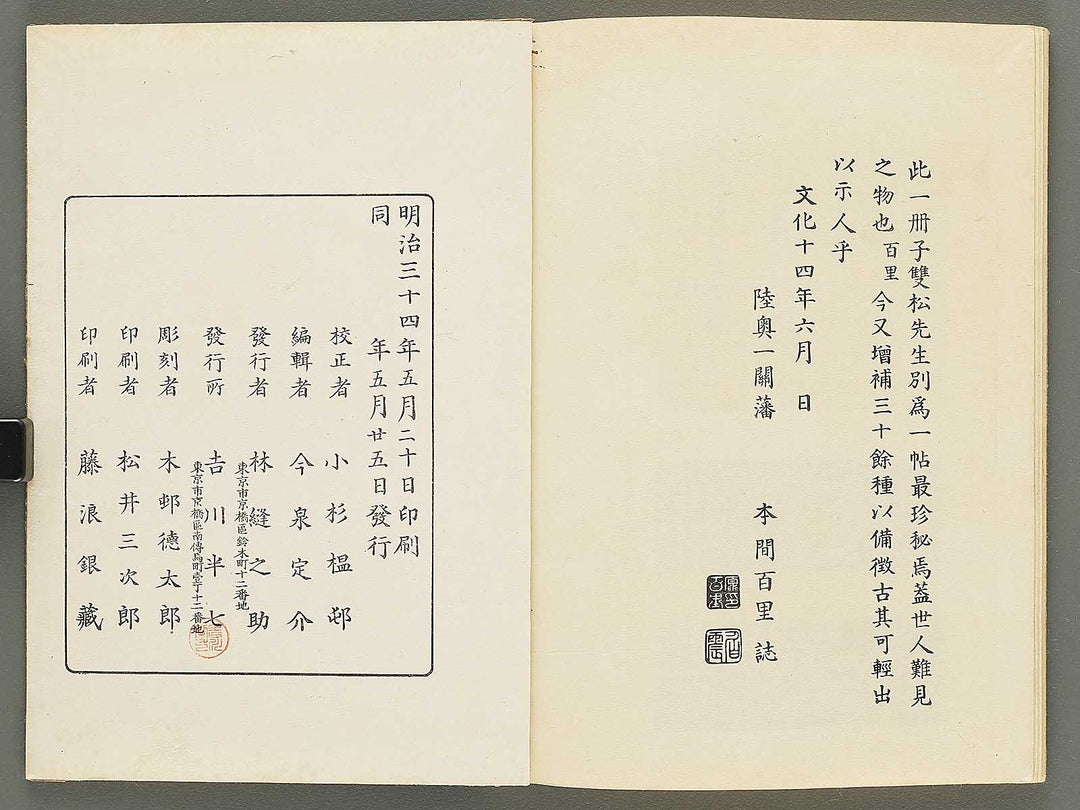 此一册子雙松先生別爲一帖最珍秘焉蓋世人難見
之物也百里今又增補三十餘種以備徴古其可輕出
以示人乎
文化十四年六月 日
陸奥一關藩 本間百里誌
明治三十四年五月二十日印刷
同 年五月廿五日發行
校正者 小杉榲邨
編輯者 今泉定介
發行者 林縫之助
東京市京橋區鈴木町十二番地
發行所 吉川半七
東京市京橋區南傳馬町壹丁十二番地
彫刻者 木邨德太郎
印刷者 松井三次郎
印刷者 藤浪銀藏